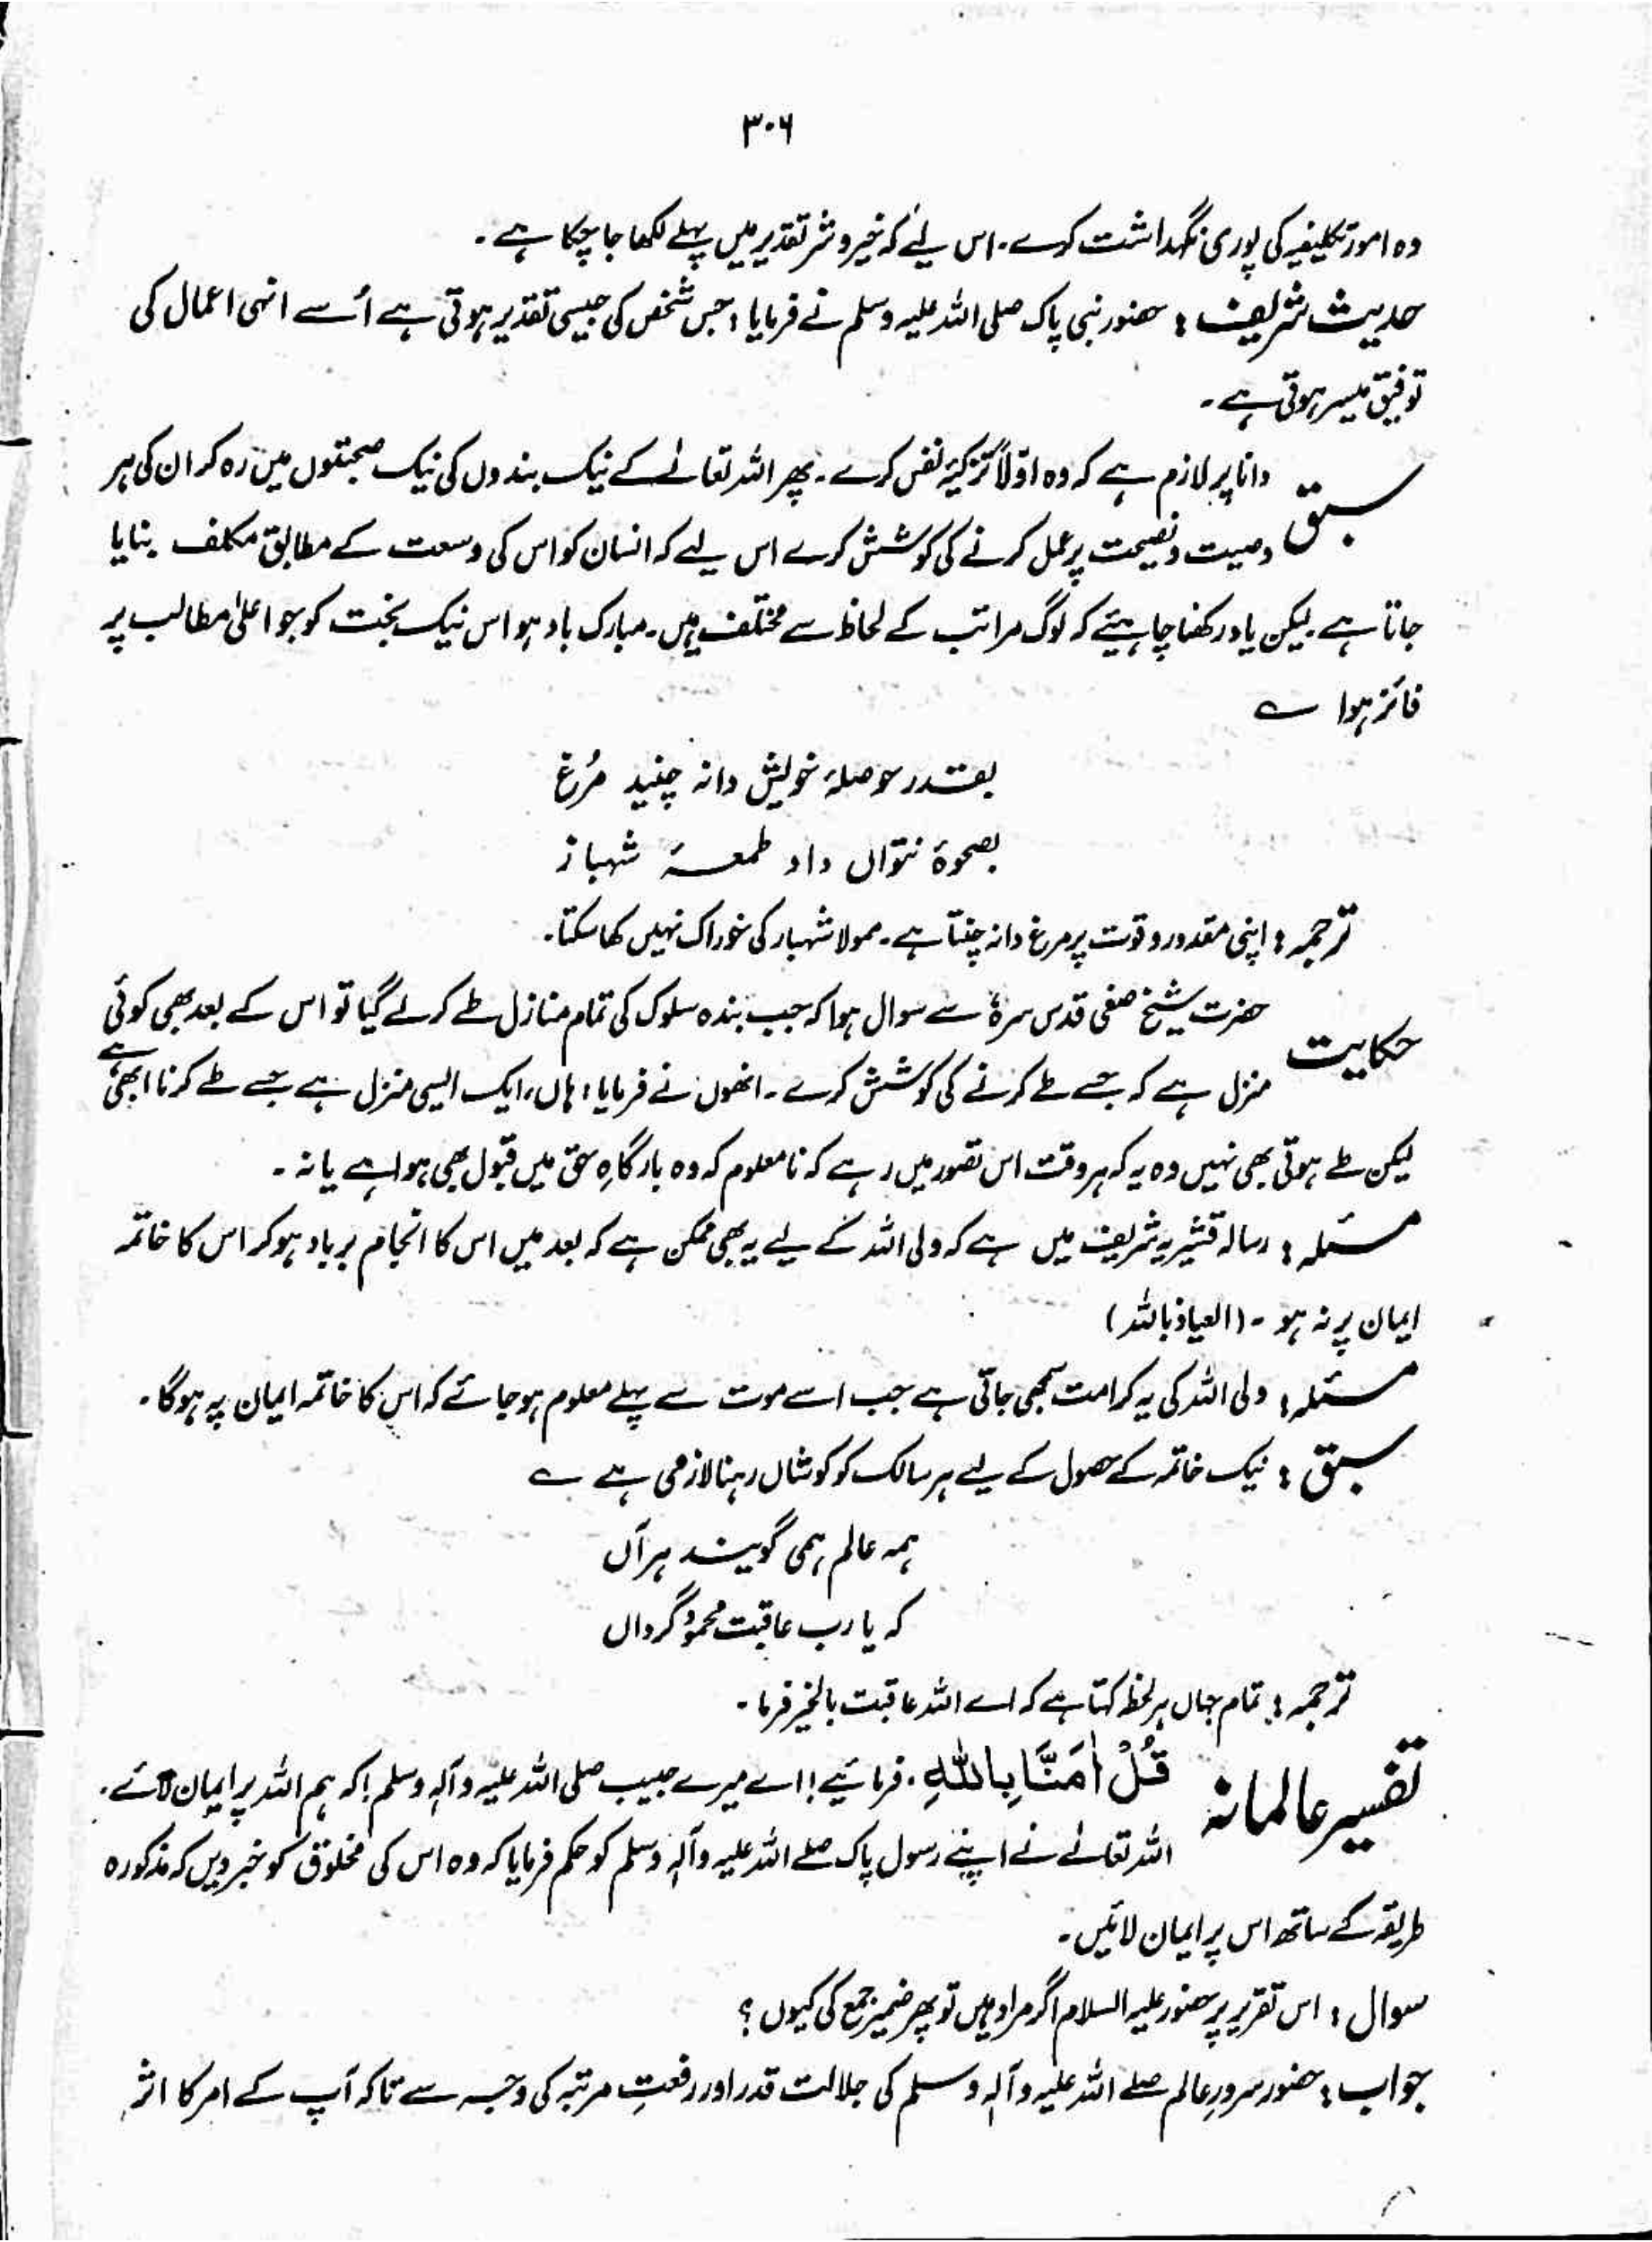 ۳۰۶
وہ امور تکلیفیہ کی پوری نگہداشت کرے۔ اس لیٔے کہ خیر و شر تقدیر میں پہلے لکھا جا چکا ہے۔
حدیث شریف : حضور نبی پاک صلی اللہ علیہ وسلم نے فرمایا : جس شخص کی جیسی تقدیر ہوتی ہے اُسے انہی اعمال کی
توفیق میسر ہوتی ہے۔
سبق دانا پر لازم ہے کہ وہ اوّلاً تزکیۂ نفس کرے۔ پھر اللہ تعالےٰ کے نیک بندوں کی نیک صحبتوں میں رہ کر ان کی ہر
وصیت و نصیحت پر عمل کرنے کی کوشش کرے اس لیے کہ انسان کو اس کی وسعت کے مطابق مکلف بنایا
جاتا ہے۔ لیکن یاد رکھنا چاہیئے کہ لوگ مراتب کے لحاظ سے مختلف ہیں۔ مبارک باد ہو اس نیک بخت کو جو اعلیٰ مطالب پر
فائز ہوا ؎
بقدر حوصلۂ خویش دانہ چنید مُرغ
بصعوۂ نتواں داد طعمۂ شہباز
ترجمہ : اپنی مقدور و قوت پر مرغ دانہ چنتا ہے۔ ممولا شہباز کی خوراک نہیں کھا سکتا۔
حکایت حضرت شیخ صفی قدس سرہٗ سے سوال ہوا کہ جب بندہ سلوک کی تمام منازل طے کر لے گیا تو اس کے بعد بھی کوئی
منزل ہے کہ جسے طے کرنے کی کوشش کرے۔ انھوں نے فرمایا : ہاں، ایک ایسی منزل ہے جسے طے کرنا ابھی ہے
لیکن طے ہوتی بھی نہیں وہ یہ کہ ہر وقت اس تصور میں رہے کہ نامعلوم کہ وہ بارگاہِ حق میں قبول بھی ہوا ہے یا نہ۔
مسئلہ : رسالہ قشیریہ شریف میں ہے کہ ولی اللہ کے لیے یہ بھی ممکن ہے کہ بعد میں اس کا انجام برباد ہو کر اس کا خاتمہ
ایمان پر نہ ہو۔ (العیاذ باللہ)
مسئلہ : ولی اللہ کی یہ کرامت سمجھی جاتی ہے جب اسے موت سے پہلے معلوم ہو جائے کہ اس کا خاتمہ ایمان پہ ہوگا۔
سبق : نیک خاتمہ کے حصول کے لیے ہر سالک کو کوشاں رہنا لازمی ہے ؎
ہمہ عالم ہمی گویند ہر آں
کہ یا رب عاقبت محمود گرداں
ترجمہ : تمام جہاں ہر لحظہ کہتا ہے کہ اے اللہ عاقبت بالخیر فرما۔
تفسیر عالمانہ قُلْ اٰمَنَّا بِاللّٰهِ۔ فرمائیے! اے میرے حبیب صلی اللہ علیہ وآلہٖ وسلم! کہ ہم اللہ پر ایمان لائے۔
اللہ تعالےٰ نے اپنے رسول پاک صلے اللہ علیہ وآلہٖ وسلم کو حکم فرمایا کہ وہ اس کی مخلوق کو خبر دیں کہ مذکورہ
طریقہ کے ساتھ اس پر ایمان لائیں۔
سوال : اس تقریر پر حضور علیہ السلام اگر مراد ہیں تو پھر ضمیر جمع کی کیوں ؟
جواب : حضور سرورِ عالم صلے اللہ علیہ وآلہٖ وسلم کی جلالت قدر اور رفعتِ مرتبہ کی وجہ سے تاکہ آپ کے امر کا اثر